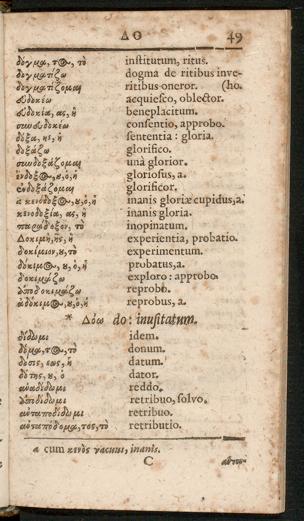 ΔΟ 49
δόγμα, τ@, τὸ institutum, ritus.
δογματίζω dogma de ritibus inve-
δογματίζομαι ritibus oneror. (ho.
εὐδοκέω acquiesco, oblector.
εὐδοκία, ας, ἡ beneplacitum.
συνευδοκέω consentio, approbo.
δόξα, ης, ἡ sententia: gloria.
δοξάζω glorifico.
συνδοξάζομαι unà glorior.
ἔνδοξ@, ȣ, ὁ, ἡ gloriosus, a.
ἐνδοξάζομαι glorificor.
a κενόδοξ@, ȣ, ὁ, ἡ inanis gloriæ cupidus, a.
κενοδοξία, ας, ἡ inanis gloria.
παράδοξον, τὸ inopinatum.
Δοκιμὴ, ῆς, ἡ experientia, probatio.
δοκίμιον, ȣ, τὸ experimentum.
δόκιμ@, ȣ, ὁ, ἡ probatus, a.
δοκιμάζω exploro: approbo.
ἀποδοκιμάζω reprobo.
ἀδόκιμ@, ȣ, ὁ, ἡ reprobus, a.
* Δόω do: inusitatum.
δίδωμι idem.
δόμα, τ@, τὸ donum.
δόσις, εως, ἡ datum.
δότης, ȣ, ὁ dator.
ἀναδίδωμι reddo.
ἀποδίδωμι retribuo, solvo.
ἀνταποδίδωμι retribuo.
ἀνταπόδομα, τος, τὸ retributio.
a cum κενὸς vacuus, inanis.
C